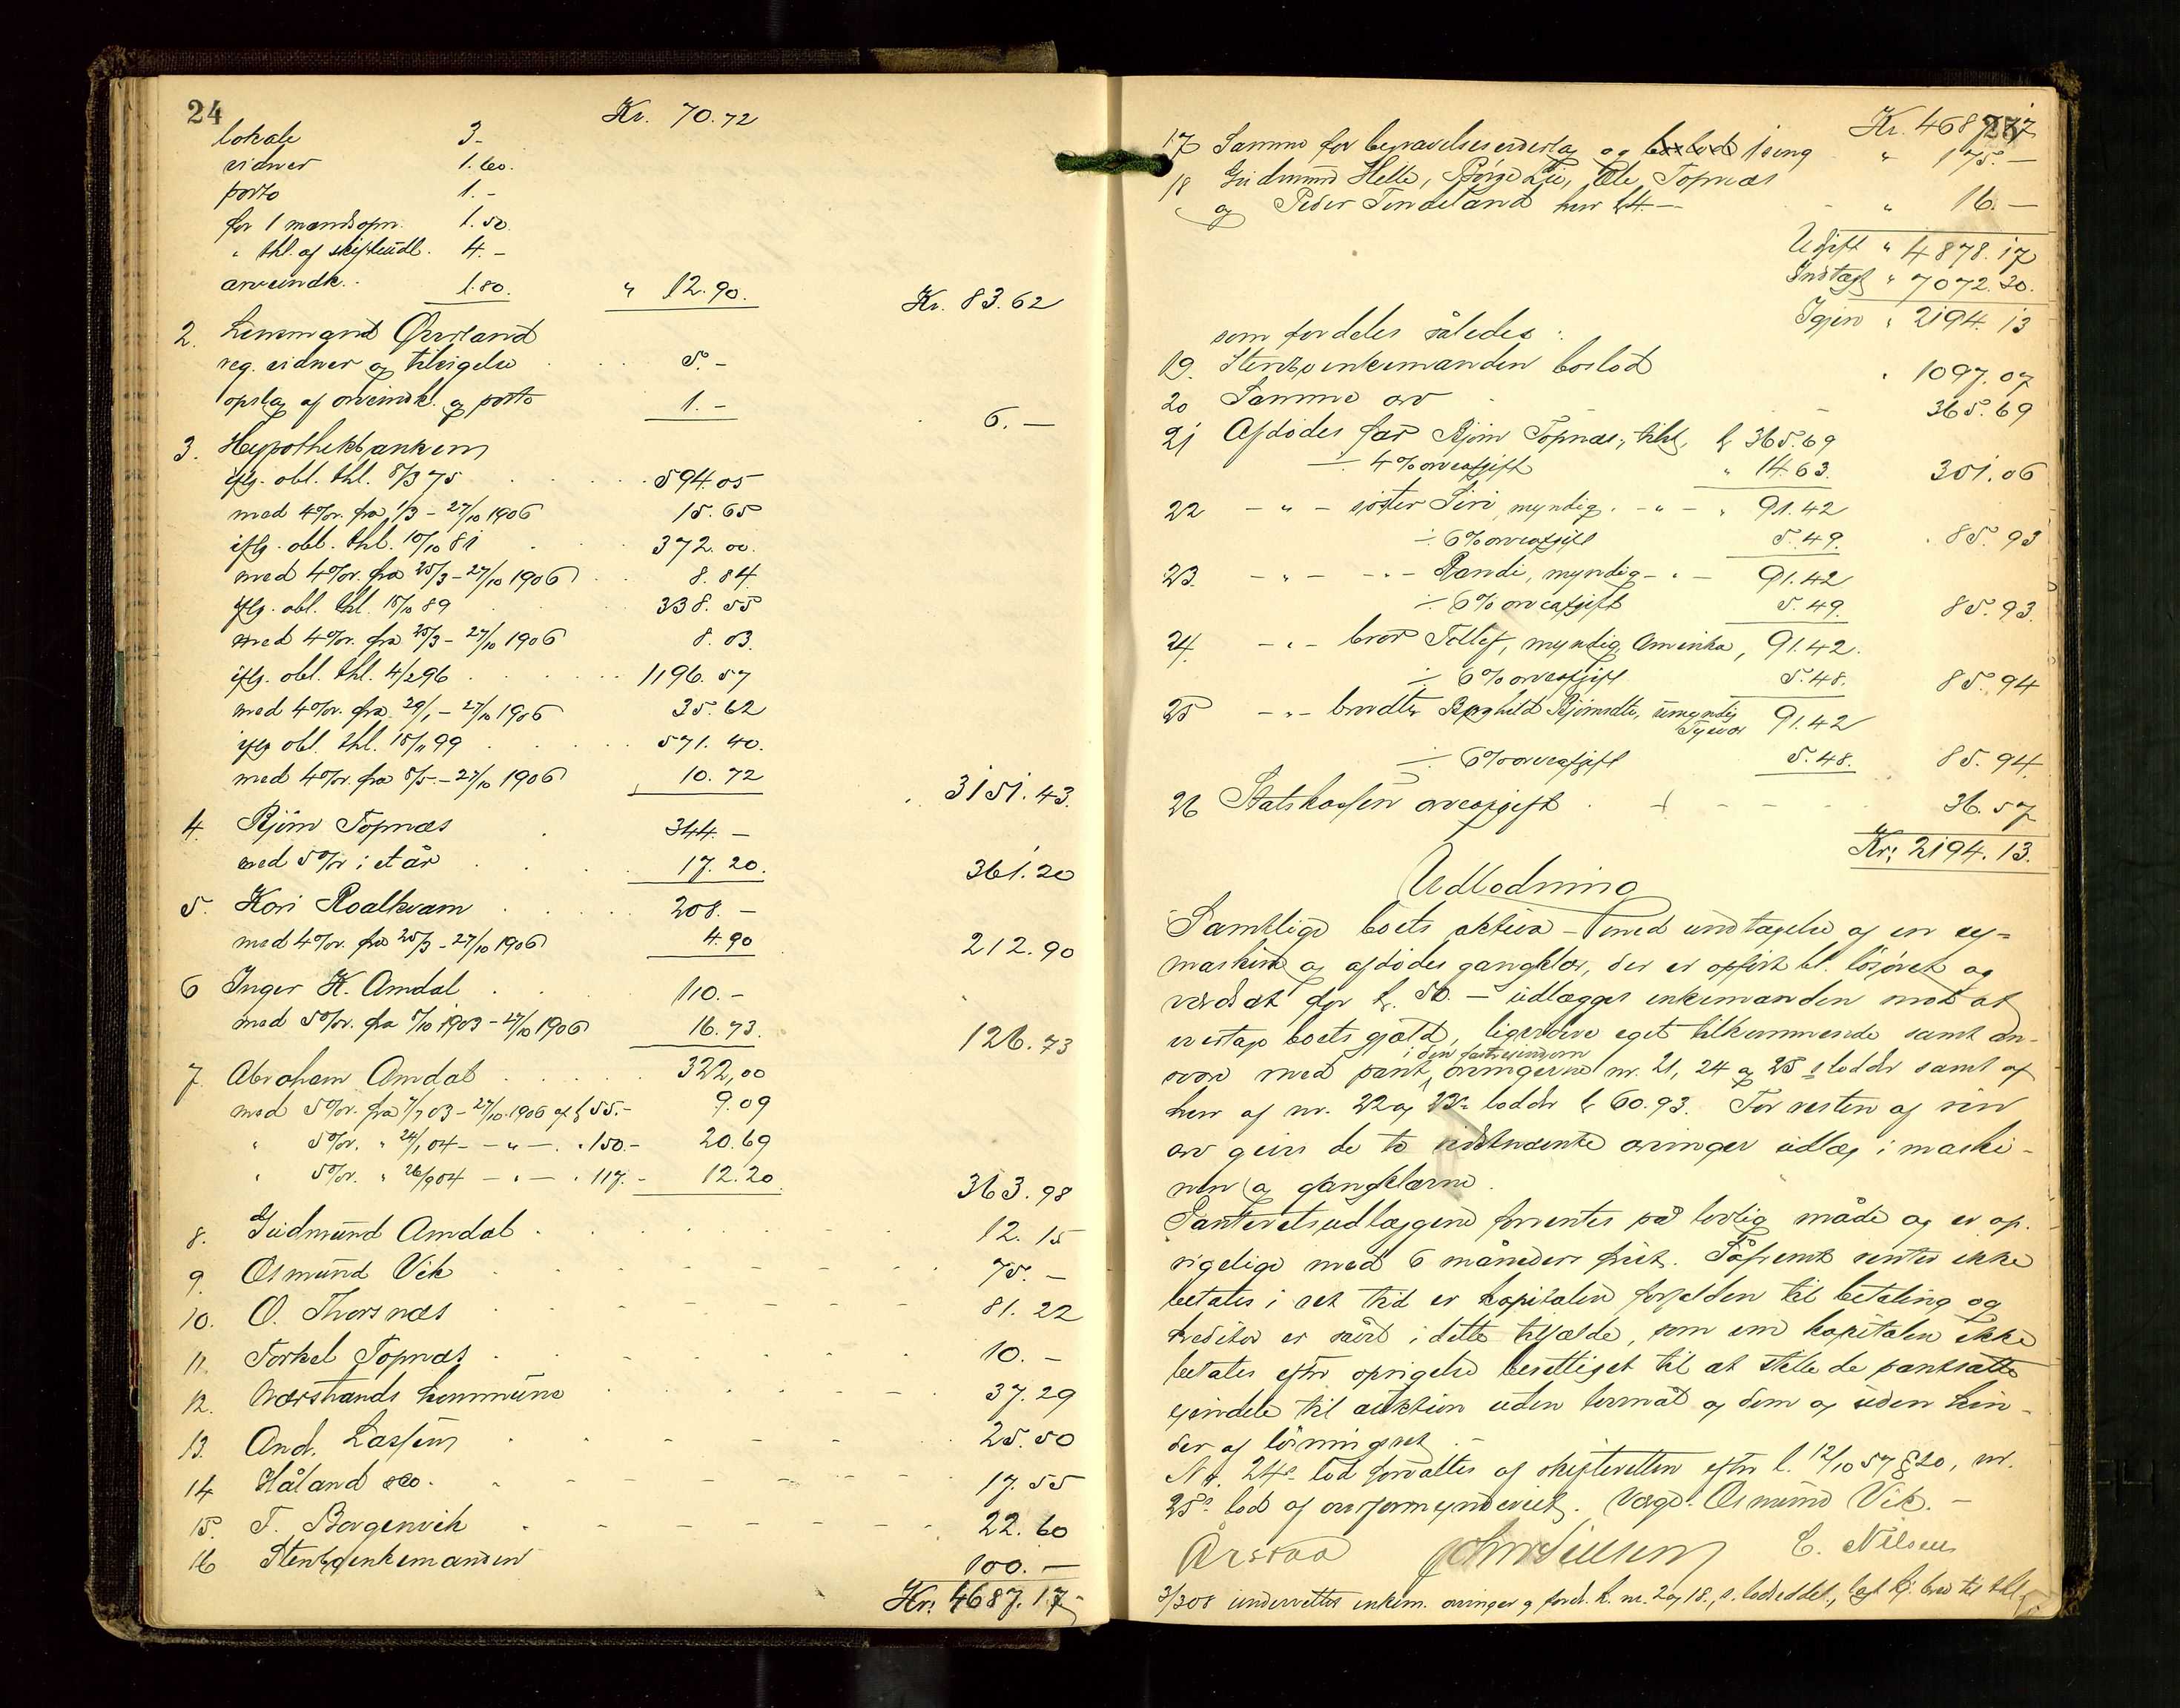 24
Kr. 70.72
lokale 3.-
vidner 1.60.
porto 1.-
for 1 mandsopn. 1.50.
" thl. af skifteudl. 4.-
arveindk. 1.80. " 12.90. Kr. 83.62
2. Lensmand Øvrland
reg. vidner og tilsigelse 5.-
opslag af arveindk. og porto 1.- 6.-
3. Hypothekbanken
iflg. obl. thl. 8/3 75 594.05
med 4% r. fra 1/3 - 27/10 1906 15.65
iflg. obl. thl. 10/10 81 372.00.
med 4% r. fra 25/3 - 27/10 1906 8.84
iflg. obl. thl. 15/10 89 338.55
med 4% r. fra 25/3 - 27/10 1906 8.03.
iflg. obl. thl. 4/2 96 1196.57
med 4% r. fra 29/1 - 27/10 1906 35.62
iflg obl. thl. 15/11 99 571.40.
med 4% r. fra 8/5 - 27/10 1906 10.72 3151.43.
4. Bjørn Topnæs 344.-
med 5% r i et år 17.20. 361.20
5. Kari Roalkvam 208.-
med 4% r. fra 25/3 - 27/10 1906 4.90 212.90
6 Inger K. Amdal 110.-
med 5% r. fra /10 1903 - 27/10 1906 16.73. 126.73
7. Abraham Amdal 322,00
med 5% r. fra 7/7 03 - 27/10 1906 af k 55.- 9.09
" 5% r. " 24/1 04 - " - " 150.- 20.69
" 5% r. " 26/9 04 - " - " 117.- 12.20 363.98
8. Gudmund Amdal 12.15
9. Osmund Vik 75.-
10. O. Thorsnæs 81.22
11. Torkel Topnæs 10.-
12. Nærstrands kommune 37.29
13. And. Lassen 25.50
14 Håland &co. 17.55
15. T. Borgenvik 22.60
16 Stenbø enkemanden 100.-
Kr. 4687.17
257
Kr. 4687.17
17 Samme for begravelsesudlæg og 1 seng " 175.-
18 Gudmund Helle, Børge Lie, Ole Topnæs
og Peder Tendeland hver k 4.- " 16.-
Udgift " 4878.17
Indtægt " 7072.30.
Igjen " 2194.13
som fordeles således:
19. Stenbø enkemanden boslod " 1097.07
20 Samme arv 365.69
21 Afdødes far Bjørn Topnæs, tilst. k 365.69
÷ 4% arveafgift " 14.63. 351.06
22 - " - søster Siri, myndig. - " - " 91.42
÷ 6% arveafgift 5.49. 85.93
23. - " - - " - Randi, myndig - " - 91.42
÷ 6% arveafgift 5.49. 85.93.
24. - " - bror Tollef, myndig Amerika, 91.42.
÷ 6% arveafgift 5.48. 85.94
25 - " - brordtr Borghild Bjørnsdtr, umyndig
Tysvær 91.42
÷ 6% arveafgift 5.48. 85.94.
26 Statskassen arveafgift 36.57
Kr: 2194.13.
Udlodning
Samtlige boets aktiva - med undtagelse af en sy=
maskine og afdødes gangklær, der er opført bl. løsøret og
værdsat for k. 50. - udlægges enkemanden mod at
overtage boets gjæld, ligesom eget tilkommende samt an-
svar med pant i den faste eiendom arvingerne nr. 21, 24 og 25s lodder samt af
hver af nr. 22 og 23s lodder k 60.93. For resten af sin
arv gives de to sidstnævnte arvinger udlæg i maski-
nen og gangklærne.
Panteretsudlæggene forrentes på lovlig måde og er op-
sigelige med 6 måneders frist. Såfremt renter ikke
betales i ret tid er kapitalen forfalden til betaling og
kreditor er såvel i dette tilfælde, som om kapitalen ikke
betales efter opsigelse berettiget til at stille de pantsatte
eiendele til auktion uden lovmål og dom og uden hin-
der af løsningsret.
Nr. 24s lod forvaltes af skifteretten efter l. 12/10 57 § 20, nr.
25s lod af overformynderiet. Værge: Osmund Vik. -
Årstad C. Nilsen
3/3 08 underrettes enkem. arvinger g ford. h. nr. 2 og 18., s. loddeddel.,